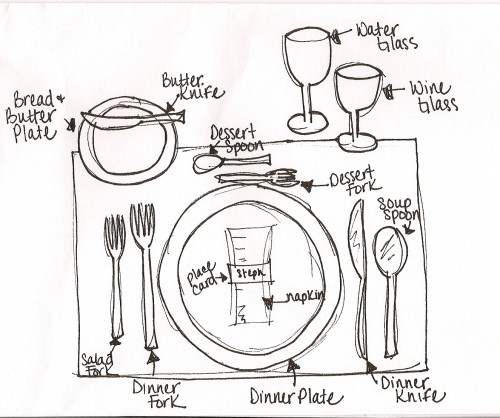 Water
Glass
Wine
Glass
Butter
Knife
Bread &
Butter
Plate
Dessert
Spoon
Dessert
Fork
Soup
Spoon
Place
Card
Steph
napkin
Salad
Fork
Dinner
Fork
Dinner Plate
Dinner
Knife